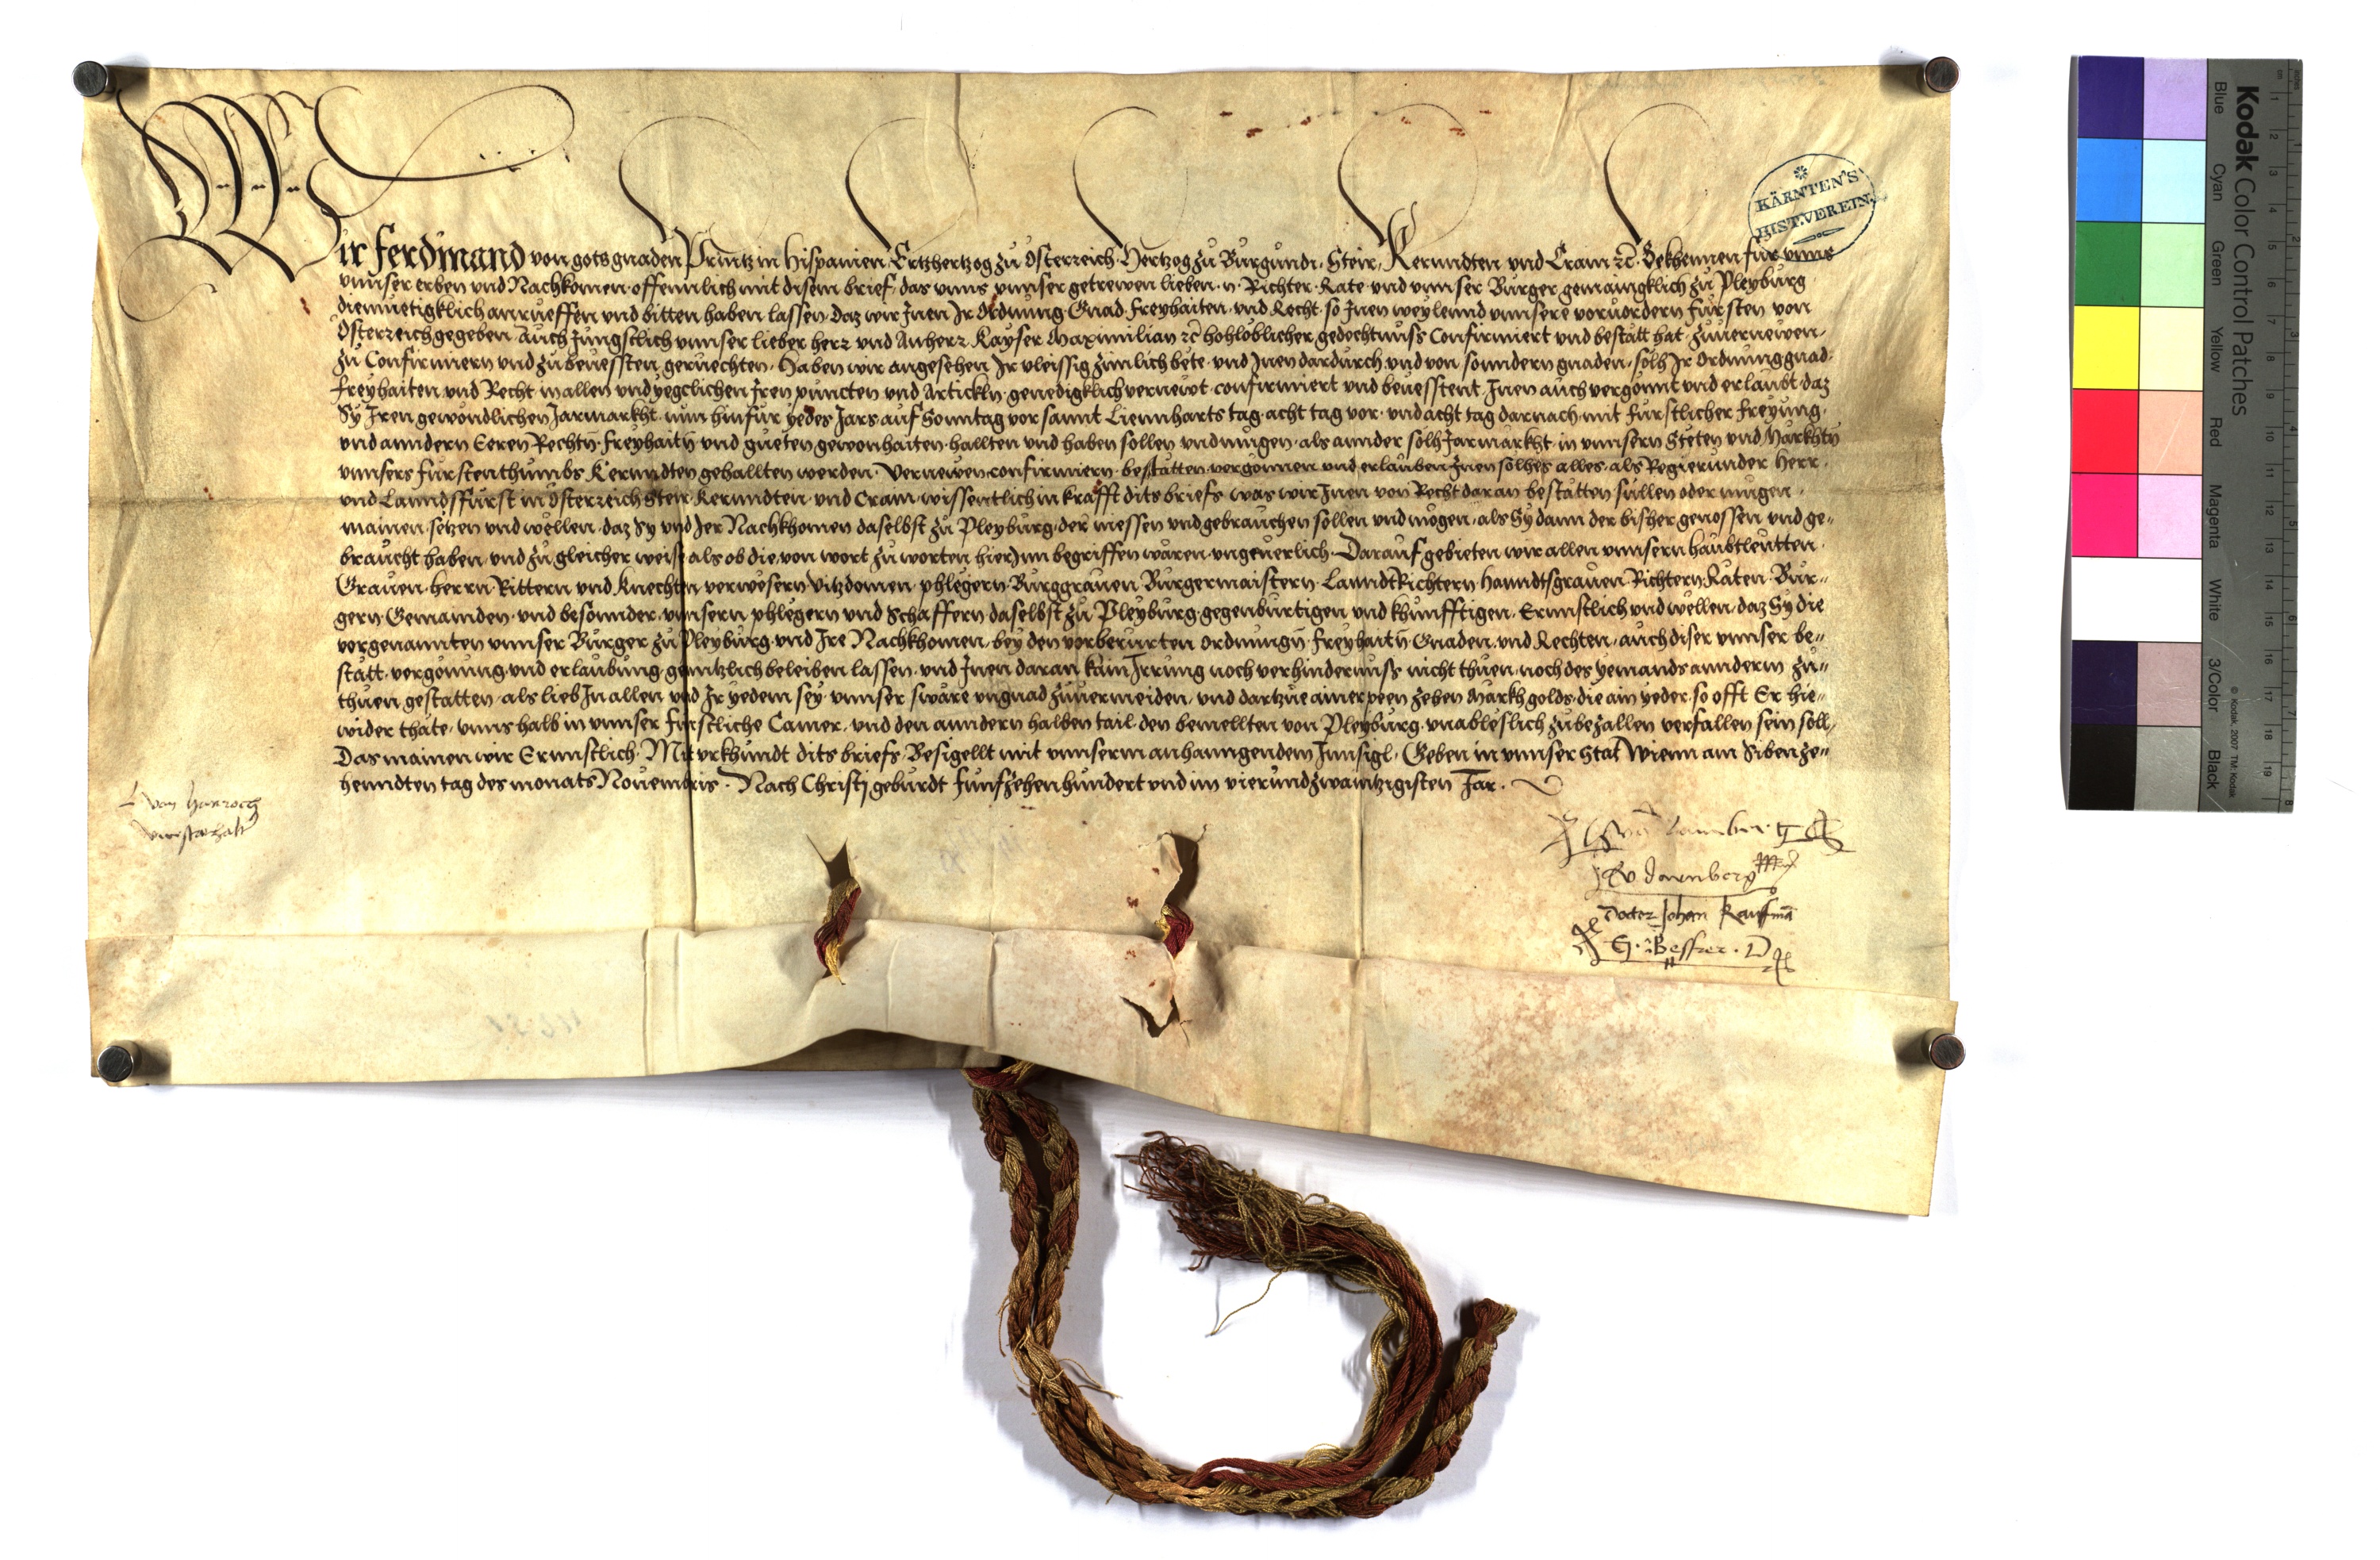 Wir Ferdinand von gots gnaden Printz in Hispanien Ertzhertzog zů Österreich Hertzog zů Burgundi Steir Kernndten und Crain ꝛc̄ Bekhennen für unns
unnser erben und Nachkomen offennlich mit disem brief das unns unnser getrewen lieben n Richter Rate und unnser Burger gemaingklich zů Pleyburg
diemuetigklich anrueffen und bitten haben lassen daz wir Inen Ir Ordnung Gnad Freyhaiten und Recht so Inen weylennd unnsere vorvordern Fürsten von
Österreich gegeben Auch Jungstlich unnser lieber herr und Anherr Kayser Maximilian ꝛc̄ hohloblicher gedechtnuss Confirmiert und bestätt hat zuvernewen
zů Confirmiern und zů bevessten geruechten Haben wir angesehen Ir vleissig zimlich bete und Inen dardurch und von sonndern gnaden solh Ir Ordnung gnad
freyhaiten und Recht in allen und yegclichen Iren puncten und Artickln genedigklich vernewt confirmiert und bevesstent Inen auch vergonnt und erlaubt daz
Sy Iren gewondlichen Jarmarkht nun hinfür yedes Jars auf Sonntag vor sannt Lienharts tag acht tag vor und acht tag darnach mit fürstlicher freyung
und anndern Eeren Rechtn̄ Freyhaitn̄ und gueten gewonhaiten hallten und haben sollen und mugen als annder solh Jarmarkht in unnsern Steten und Märkhtn̄
unnsers Fürstenthumbs Kernndten gehallten werden Vernewen confirmiern bestätten vergonnen und erlauben Inen solhes alles als Regierunder Herr
und Lanndsfürst in Österreich Steir Kernndten und Crain wissentlich in krafft dits briefs was wir Inen von Recht daran bestätten sullen oder mugen
mainen setzen und wellen daz Sy und Jer Nachkhomen daselbst zů Pleyburg der niessen und gebrauchen sollen und mögen als Sy dann der bisher genossen und ge=
braucht haben und zů gleicher weise als ob die von wort zů worten hierInn begriffen wären ungeverlich Darauf gebieten wir allen unnsern haubtleutten
Graven Herrn Rittern und Knechten verwesern Vitzdomen phlegern Burggraven Burgermaistern LanndtRichtern hanndtsgraven Richtern Räten Bur=
gern Gemainden und besonnder unnsern phlegern und Schaffern daselbst zů Pleyburg gegenbürtigen und khunfftigen Ernnstlich und wellen daz Sy die
vorgenannten unnser Burger zů Pleyburg und Ire Nachkhomen bey den vorberürten Ordnungn̄ Freyhaitn̄ Gnaden und Rechten auch diser unnser be=
stätt vergonung und erlaubung genntzlich beleiben lassen und Inen daran kain Irrung noch verhindernuss nicht thuen noch des yemands annderm zů=
thuen gestatten als lieb In allen und Ir yedem sey unnser swäre ungnad zuvermeiden und dartzue ainer peen zehen Markh golds die ain yeder so offt Er hie=
wider thäte unns halb in unnser fürstliche Camer und den anndern halben tail den bemellten von Pleyburg unableslich zubezallen verfallen sein soll
Das mainen wir Ernnstlich Mit urkhundt dits briefs Besigellt mit unnserm anhanngendem Innsigl Geben in unnser Stat Wienn am Sibenze=
henndten tag des monats Novembris Nach Christi geburdt Funfzehenhundert und im vierundzwaintzigisten Jar
L von Harroch
Lamberg
Dornberg
Doctor Johan Kaufman̄
G. Besserer D
KÄRNTEN'S
HIST. VEREIN.
Kodak Color Control Patches
Blue Cyan Green Yellow Red Magenta White 3/Color Black
© Kodak, 2007 TM: Kodak
1 2 3 4 5 6 7 8 9 10 11 12 13 14 15 16 17 18 19
1 2 3 4 5 6 7 8